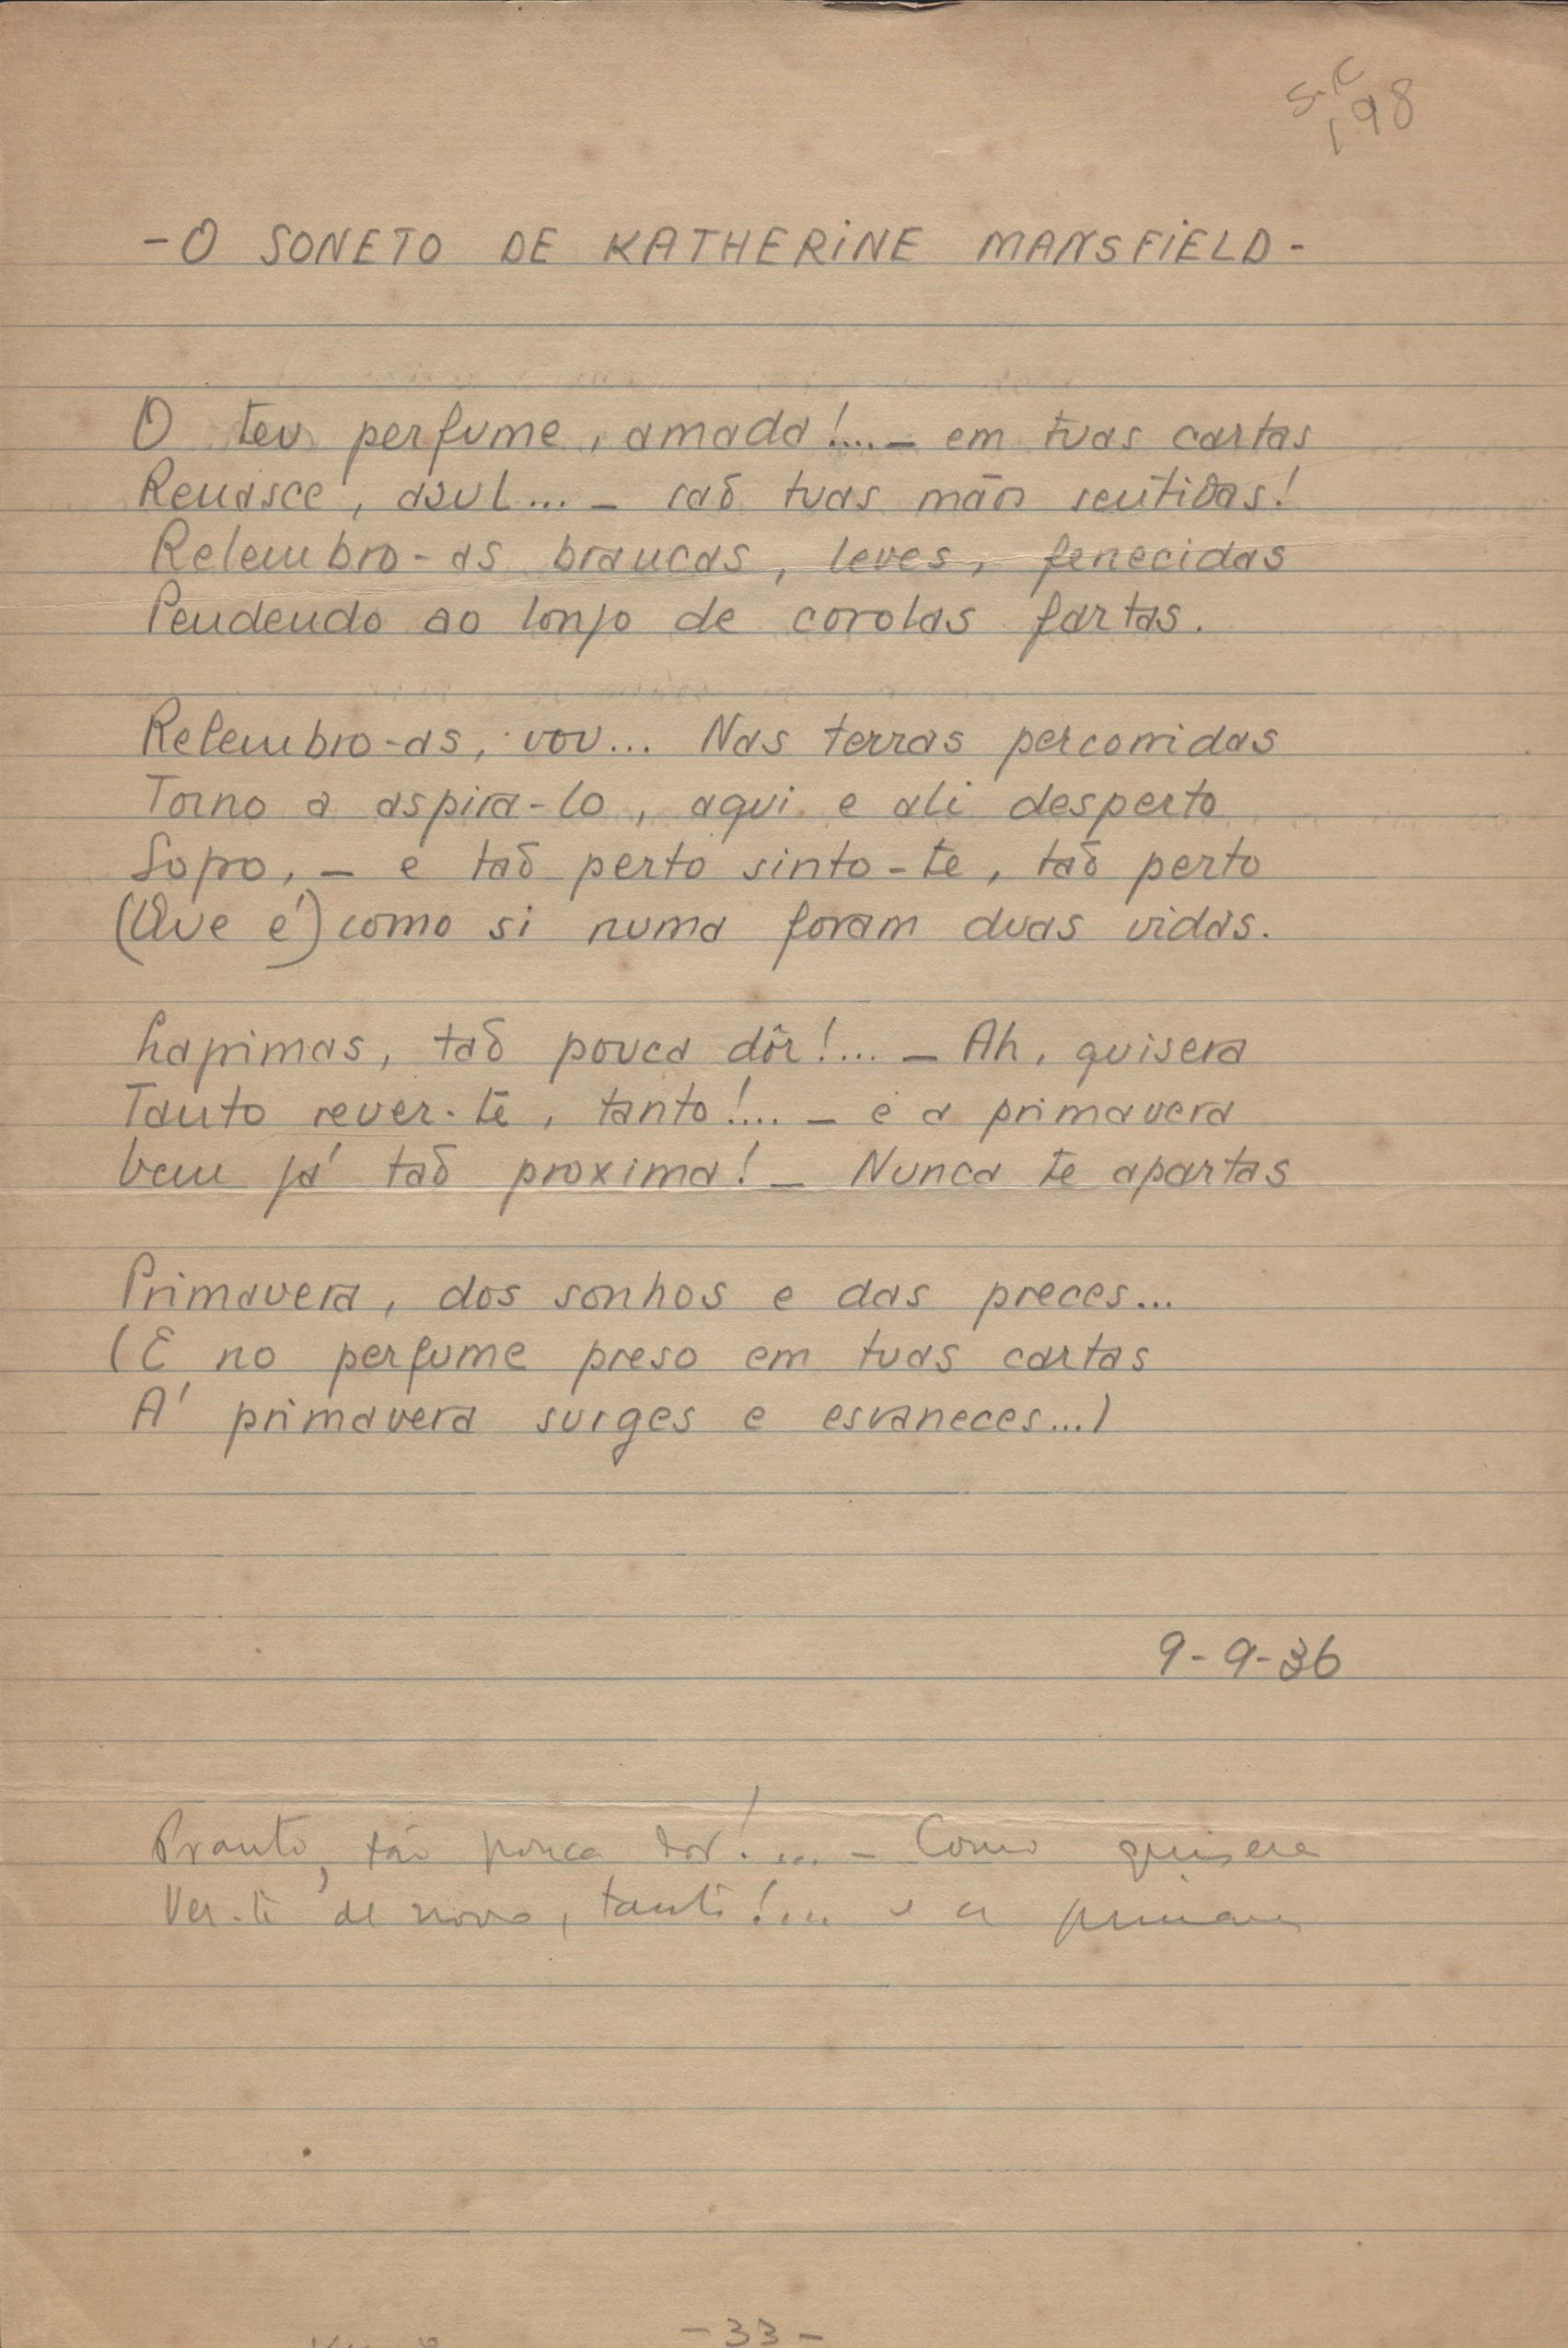 S.C
198
- O SONETO DE KATHERINE MANSFIELD -
O teu perfume, amada!... – em tuas cartas
Renasce, azul... – saõ tuas mãos sentidas!
Relembro-as brancas, leves, fenecidas
Pendendo ao longo de corolas fartas.
Relembro-as, vou... Nas terras percorridas
Torno a aspira-lo, aqui e ali desperto
Sopro, – e taõ perto sinto-te, taõ perto
(Que é) como si numa foram duas vidas.
Lagrimas, taõ pouca dôr!... – Ah, quisera
Tanto rever-te, tanto!... – e a primavera
Vem já taõ proxima! – Nunca te apartas
Primavera, dos sonhos e das preces...
(E no perfume preso em tuas cartas
Á primavera surges e esvaneces...)
9-9-36
Pranto, tão pouca dor!... – Como quisera
Ver-te de novo, tanto!... e a
-33-